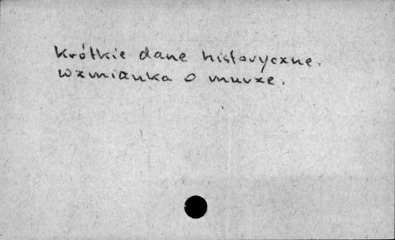 Krótkie dane historyczne.
Wzmianka o murze.